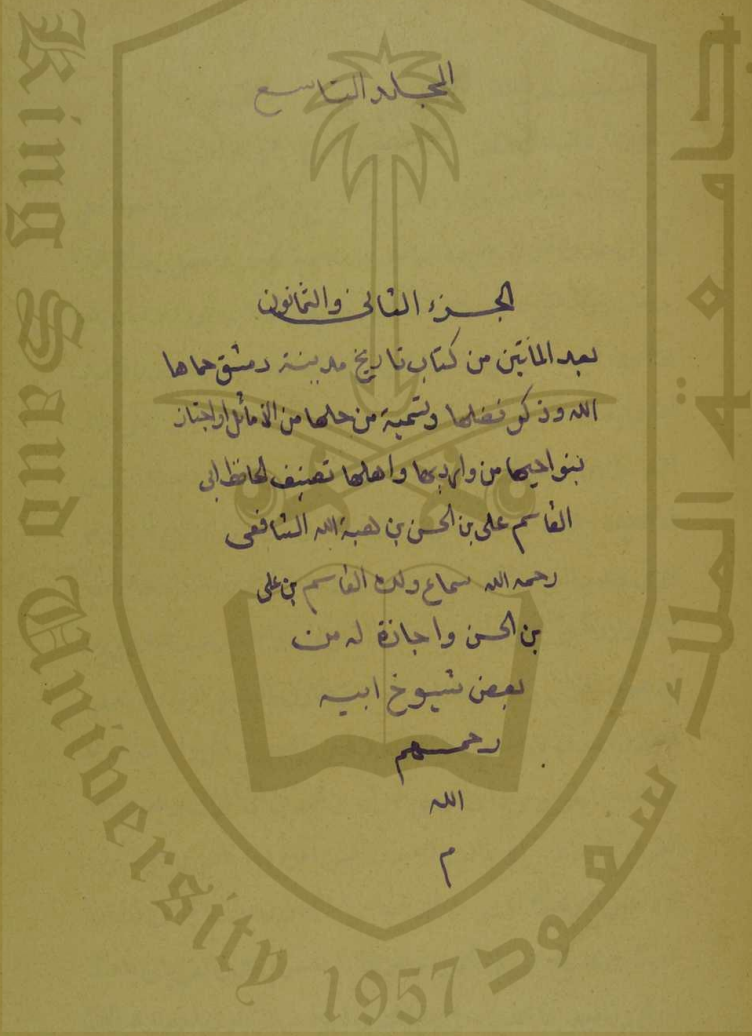 المجلد التاسع
الجزء الثانى والثمانون
بعد المأتين من كتاب تاريخ مدينة دمشق حماها
الله وذكر فضلها وتسمية من حلها من الاماثل او اجتاز
بنواحيها من وارديها واهلها تصنيف الحافظ ابى
القاسم على بن الحسن بن هبة الله الشافعى
رحمه الله سماع ولده القاسم بن على
بن الحسن واجازة له من
بعض شيوخ ابيه
رحمهم
الله
م
King Saud University 1957
جامعة الملك سعود